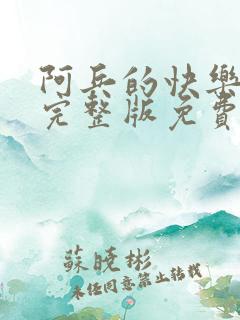 阿兵的快樂
完整版免費
蘇曉彬
未经同意禁止转载